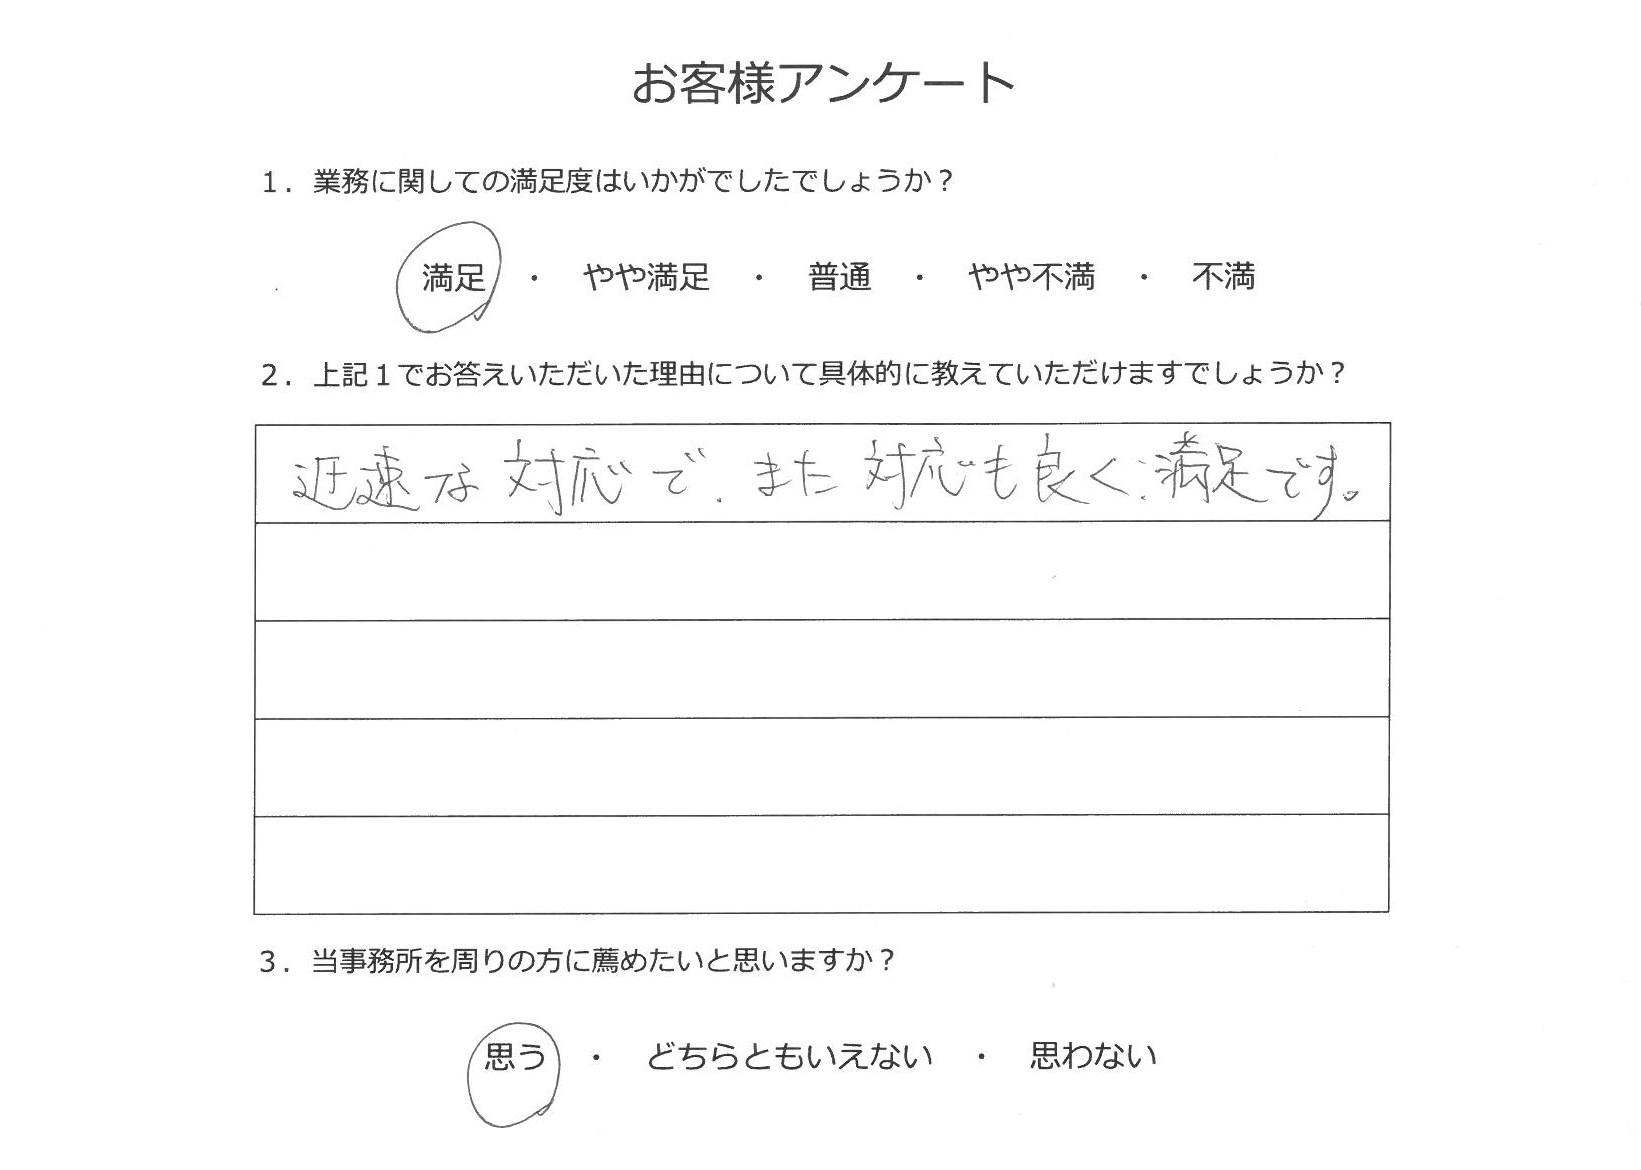 お客様アンケート
１．業務に関しての満足度はいかがでしたでしょうか？
満足　・　やや満足　・　普通　・　やや不満　・　不満
２．上記１でお答えいただいた理由について具体的に教えていただけますでしょうか？
迅速な対応で、また対応も良く、満足です。
３．当事務所を周りの方に薦めたいと思いますか？
思う　・　どちらともいえない　・　思わない